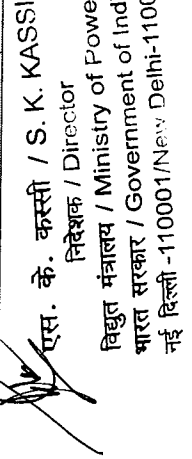 एस. के. कस्सी / S. K. KASSI
निदेशक / Director
विद्युत मंत्रालय / Ministry of Powe
भारत सरकार / Government of Ind
नई दिल्ली -110001/New Delhi-1100